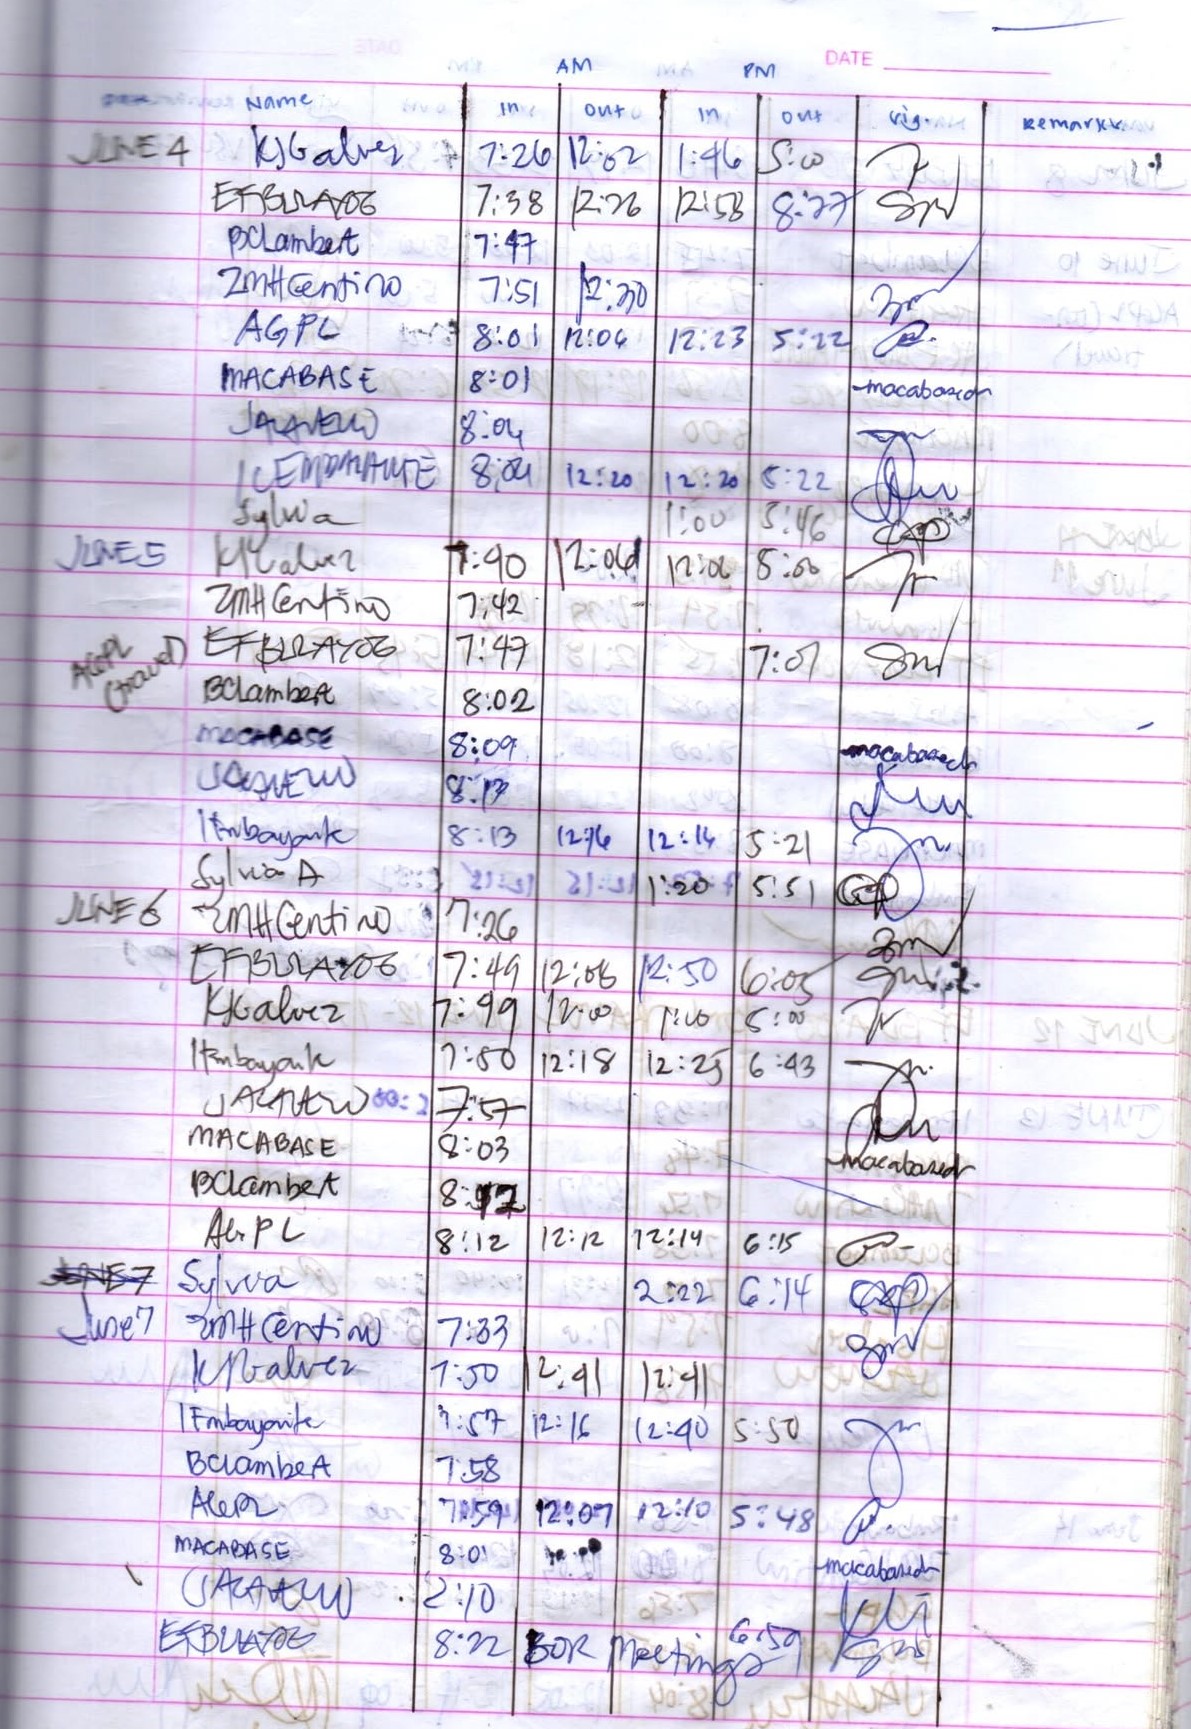 DATE
AM PM
Name In Out In Out Sig. Remarks
JUNE 4 KJGalvez 7:26 12:02 1:46 5:00
EFBULAYOG 7:38 12:58 8:27
BCLambert 7:47
ZMHCentino 7:51 12:30
AGPL 8:01 12:06 12:23 5:22
MACABASE 8:01 macabased
8:04
8:04 12:20 12:20 5:22
Sylvia 1:00 5:46
JUNE 5 KJGalvez 7:40 12:06 12:06 5:00
ZMHCentino 7:42
AGPL (travel) EFBULAYOG 7:47 7:07
BCLambert 8:02
MACABASE 8:09 macabased
8:13
IEmbayarte 8:13 12:14 5:21
Sylvia A 1:20 5:51
JUNE 6 ZMHCentino 7:26
EFBULAYOG 7:49 12:06 12:50 6:05
KJGalvez 7:49 12:00 1:00 5:00
IEmbayarte 7:50 12:18 12:25 6:43
7:57
MACABASE 8:03 macabased
BCLambert
AGPL 8:12 12:12 12:14 6:15
JUNE 7 Sylvia 2:22 6:14
June 7 ZMHCentino 7:33
KJGalvez 7:50 12:41 12:41
IEmbayarte 7:57 12:16 12:40 5:50
BCLambert 7:58
AGPL 7:59 12:07 12:10 5:48
MACABASE 8:01 macabased
2:10
EFBULAYOG 8:22 BOR Meetings 6:59